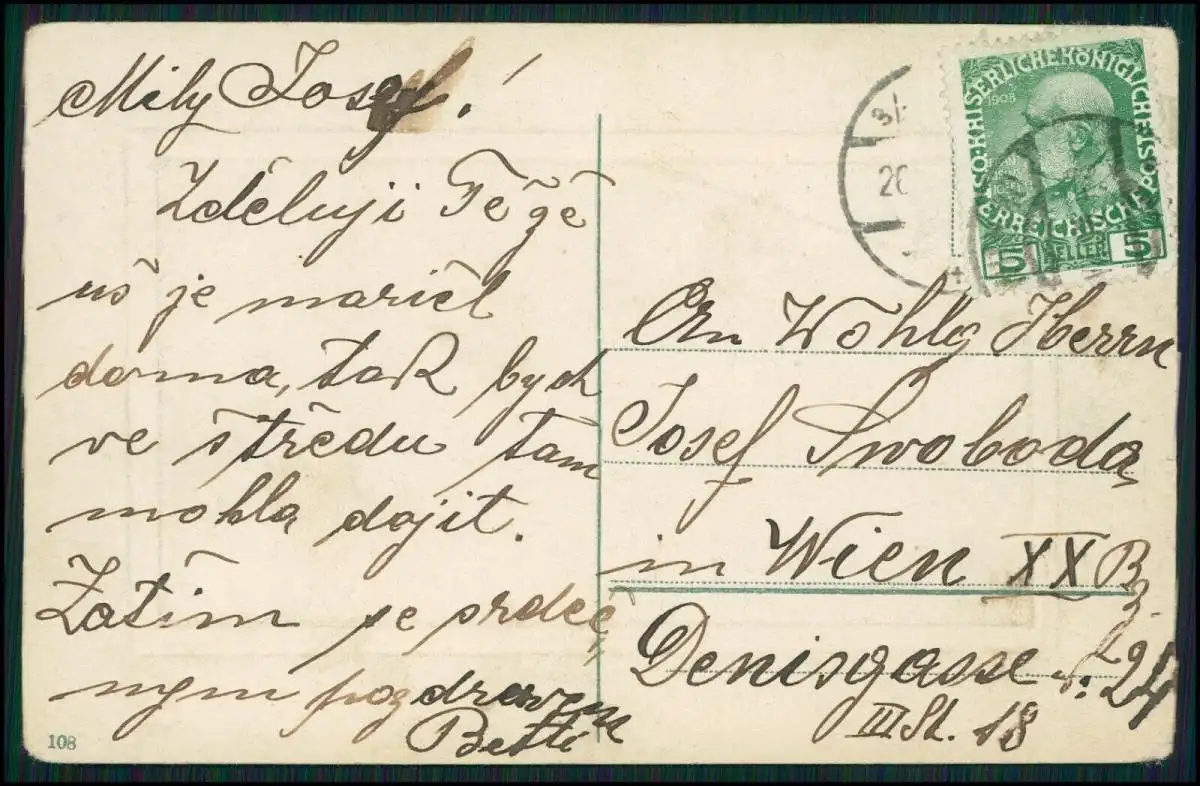 Mily Josef!
Zděluji Tě že
uš je mariel
doma, tak bych
ve středu tam
mohla dojit.
Zatim se srdeč,
nym pozdravem
Betti
108
KAISERLICHE KÖNIGLICHE
ÖSTERREICHISCHE POST
1908
5 HELLER 5
An Wohlg Herrn
Josef Swoboda
in Wien XX Bz.
Denisgasse N: 24
III St. 18